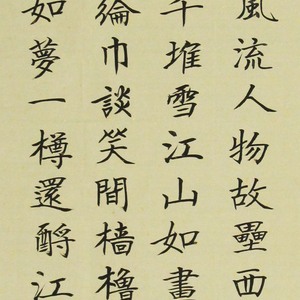 風流人物故壘西
千堆雪江山如畫
綸巾談笑間檣櫓
如夢一樽還酹江